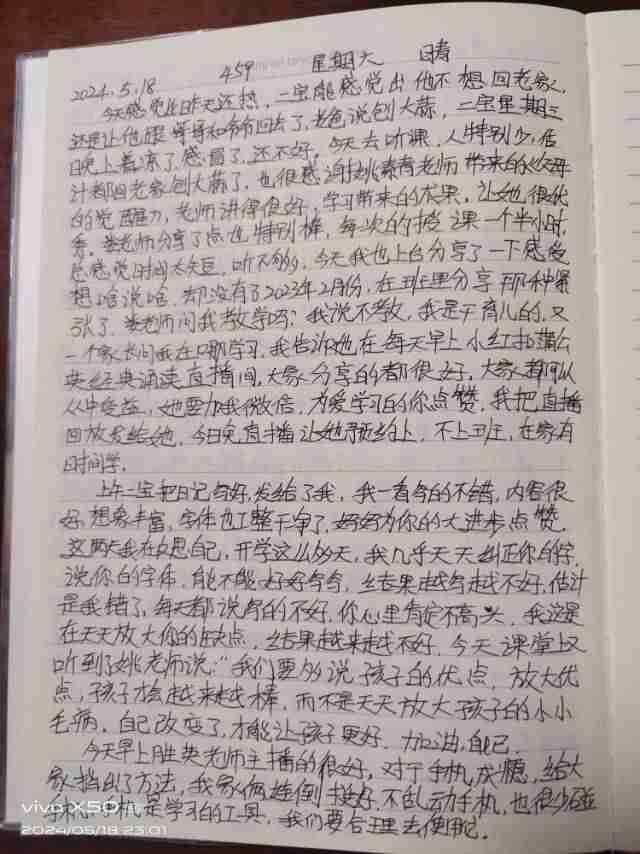 2024.5.18 459 星期六 晴
今天感觉比昨天还热，二宝能感觉出他不想回老家，
还是让他跟爷爷和爷爷回去了，老爸说创大蒜，二宝星期三
晚上着凉了感冒了，还不好，今天去听课，人特别少，估
计都回老家创大蒜了，也很感谢姚素青老师带来的《父母
的觉醒》，老师讲得很好，学习带来的成果，让她很优
秀，娄老师分享了点也特别棒，每次的授课一个半小时，
总感觉时间太短，听不够，今天我也上台分享了一下感受
想啥说啥，却没有了2023年2月份，在班里分享那种紧
张了，娄老师问我教学吗？我说不教，我是干育儿的，又
一个家长问我在哪学习，我告诉她在每天早上小红书蒲公
英经典诵读直播间，大家分享的都很好，大家都可以
从中受益，她要加我微信，为爱学习的你点赞，我把直播
回放发给她，今日免直播让她预约上，不上班，在家有
时间学。
上午二宝把日记写好，发给了我，我一看写的不错，内容很
好，想象丰富，字体也工整干净了，好好为你的大进步点赞。
这两天我在反思自己，开学这么多天，我几乎天天纠正你的字，
说你的字体，能不能好好写写，结果越写越不好，估计
是我错了，每天都说写的不好，你心里肯定不高兴，我这是
在天天放大你的缺点，结果越来越不好，今天课堂上又
听到了姚老师说："我们要多说孩子的优点，放大优
点，孩子才会越来越棒，而不是天天放大孩子的小小
毛病，自己改变了，才能让孩子更好，加油，自己。
今天早上胜英老师主播的很好，对于手机成瘾，给大
家指出了方法，我家俩娃倒挺好，不乱动手机，也很少碰
手机是学习的工具，我们要合理去使用它。
vivo X50
2024/05/18 23:01